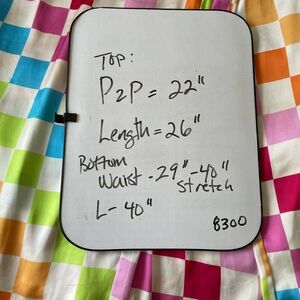 Top:
P2P = 22"
Length = 26"
Bottom
Waist - 29" - 40"
Stretch
L - 40"
8300